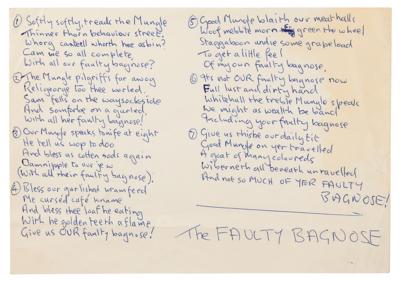 ① Softly softly, treads the Mungle
Thinner thorn behaviour street.
Whorg canteell whorth hee asbin?
Cam we so all complete,
With all our faulty bagnose?
② The Mungle pilgriffs far awoy
Religeorge too thee worled.
Sam fells on the waysock-side
And somforbe on a gurled,
With all her faulty bagnose!
③ Our Mungle speaks tonife at eight
He tell us wop to doo
And bless us cotten sods again
Oamnipple to our jew
(With all their faulty bagnose).
④ Bless our gurlished wramfeed
Me cursed café kname
And bless thee loaf he eating
With he golden teeth aflame
Give us OUR faulty bagnose!
⑤ Good Mungle blaith our meathalls
Woof mebble morn green the wheel
Staggaboon undie some grapeload
To get a little feel
of my own faulty bagnose.
⑥ Its not OUR faulty bagnose now
Full lust and dirty hand
Whitehall the treble Mungle speaks
We might as wealth be band
Including your faulty bagnose
⑦ Give us thisbe our daily tit
Good Mungle on yer travelled
A goat of many coloureds
Wiberneth all beneath unravelled
And not so MUCH OF YER FAULTY
BAGNOSE!
The FAULTY BAGNOSE